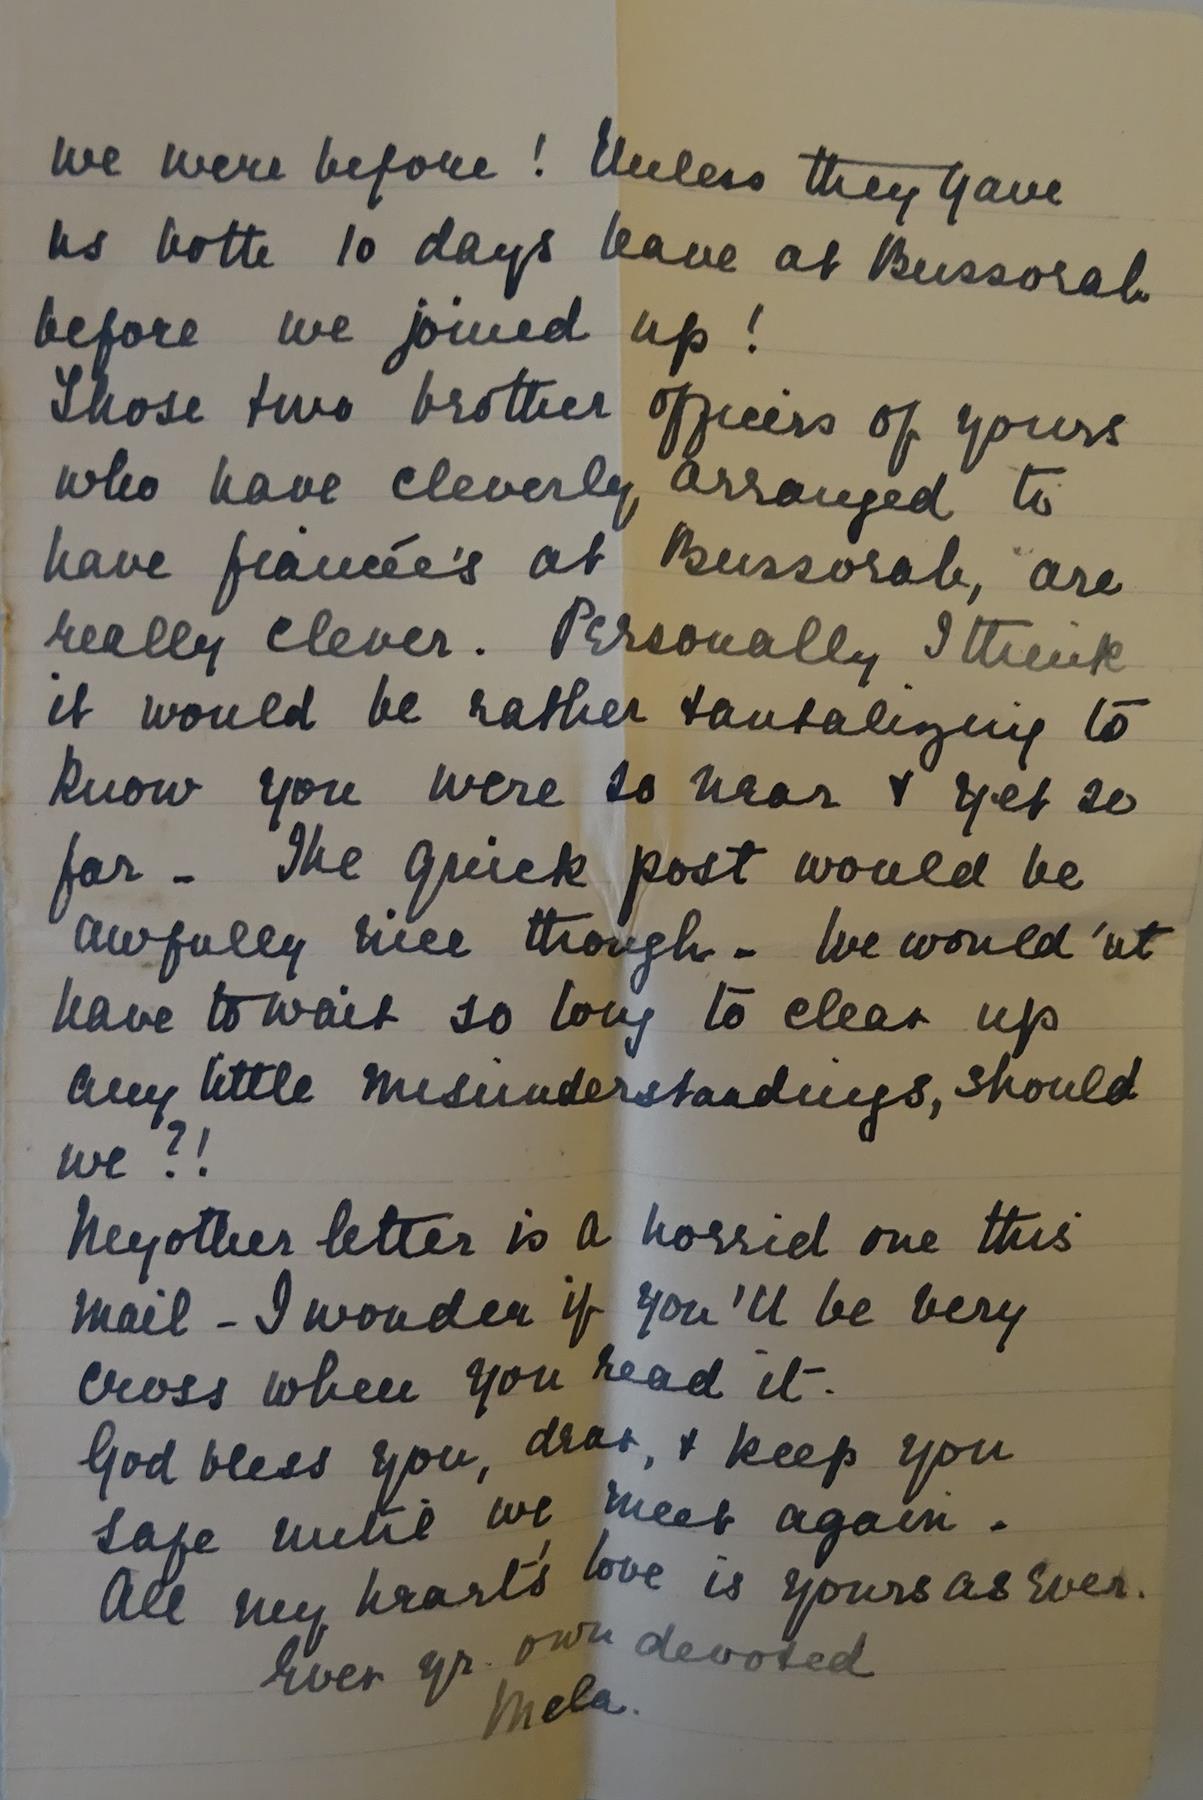 we were before! Unless they gave
us both 10 days leave at Bussorah
before we joined up!
Those two brother officers of yours
who have cleverly arranged to
have fiancée's at Bussorah, are
really clever. Personally I think
it would be rather tantalizing to
know you were so near & yet so
far - The quick post would be
awfully nice though - We would'nt
have to wait so long to clear up
any little misunderstandings, should
we?!
My other letter is a horrid one this
mail - I wonder if you'll be very
cross when you read it.
God bless you, dear, & keep you
safe until we meet again -
All my heart's love is yours as ever.
Ever yr. own devoted
Mela.